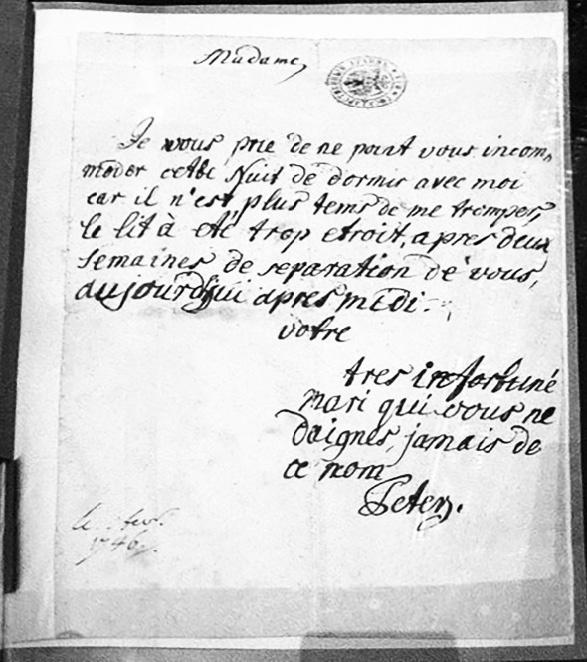 Madame,
Je vous prie de ne point vous incom,
moder cette Nuit de dormir avec moi
car il n'est plus tems de me tromper,
le lit à etè trop etroit, apres deux
semaines de separation de vous,
aujourd'hui apres midi.
votre
tres infortuné
mari qui vous ne
daignes jamais de
ce nom
Peter.
le
1746.